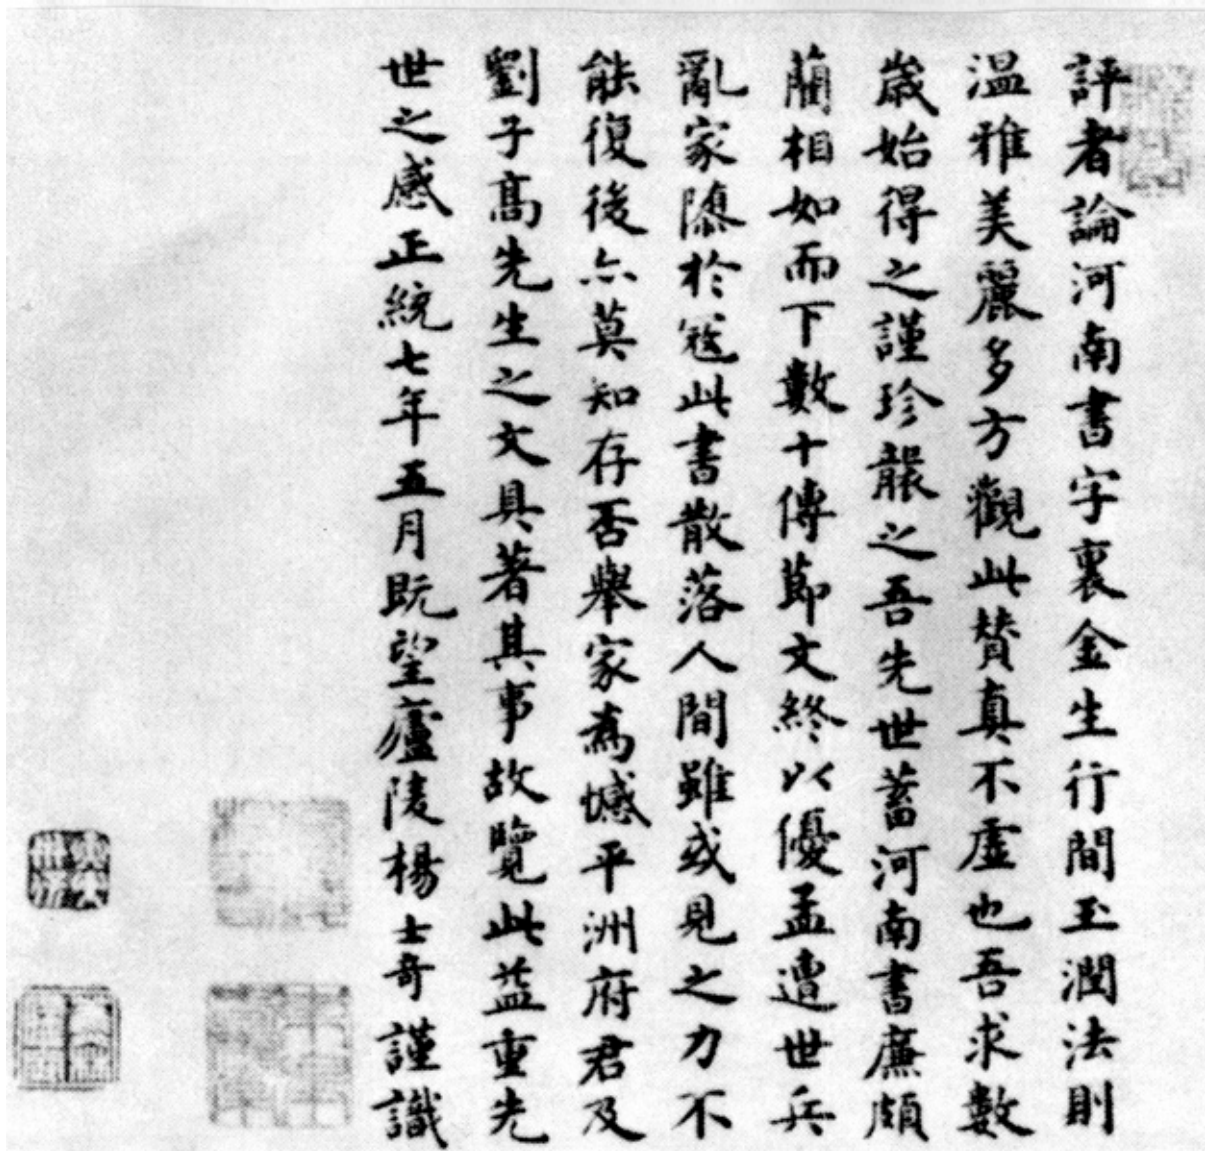 評者論河南書字裏金生行間玉潤法則
温雅美麗多方觀此賛真不虚也吾求數
歲始得之謹珍襲之吾先世蓄河南書廉頗
藺相如而下數十傳節文終以優孟遭世兵
亂家隳於冦此書散落人間雖或見之力不
能復後亦莫知存否舉家為憾平洲府君及
劉子髙先生之文具著其事故覽此益重先
世之感正統七年五月既望廬陵楊士奇謹識